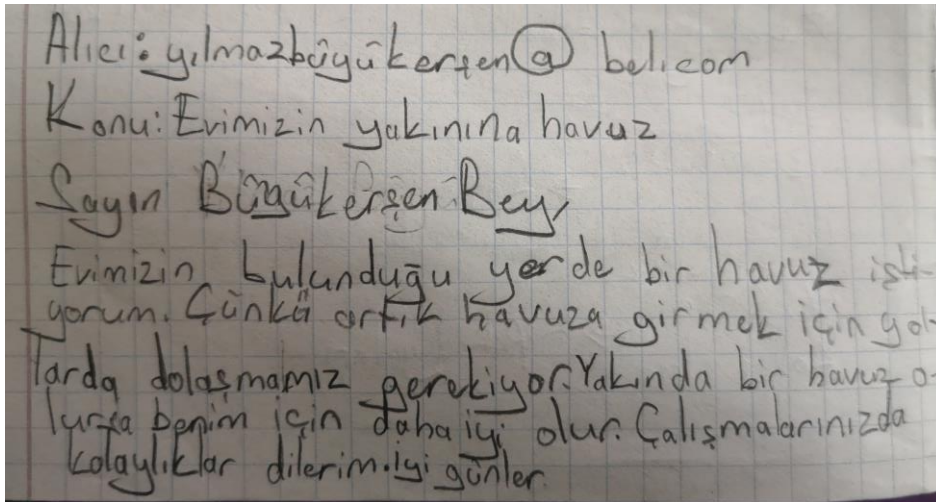 Alıcı: yılmazbüyükerşen@bel.com
Konu: Evimizin yakınına havuz
Sayın Büyükerşen Bey,
Evimizin bulunduğu yerde bir havuz isti-
yorum. Çünkü artık havuza girmek için yol-
larda dolaşmamız gerekiyor. Yakında bir havuz o-
lursa benim için daha iyi olur. Çalışmalarınızda
kolaylıklar dilerim. iyi günler.